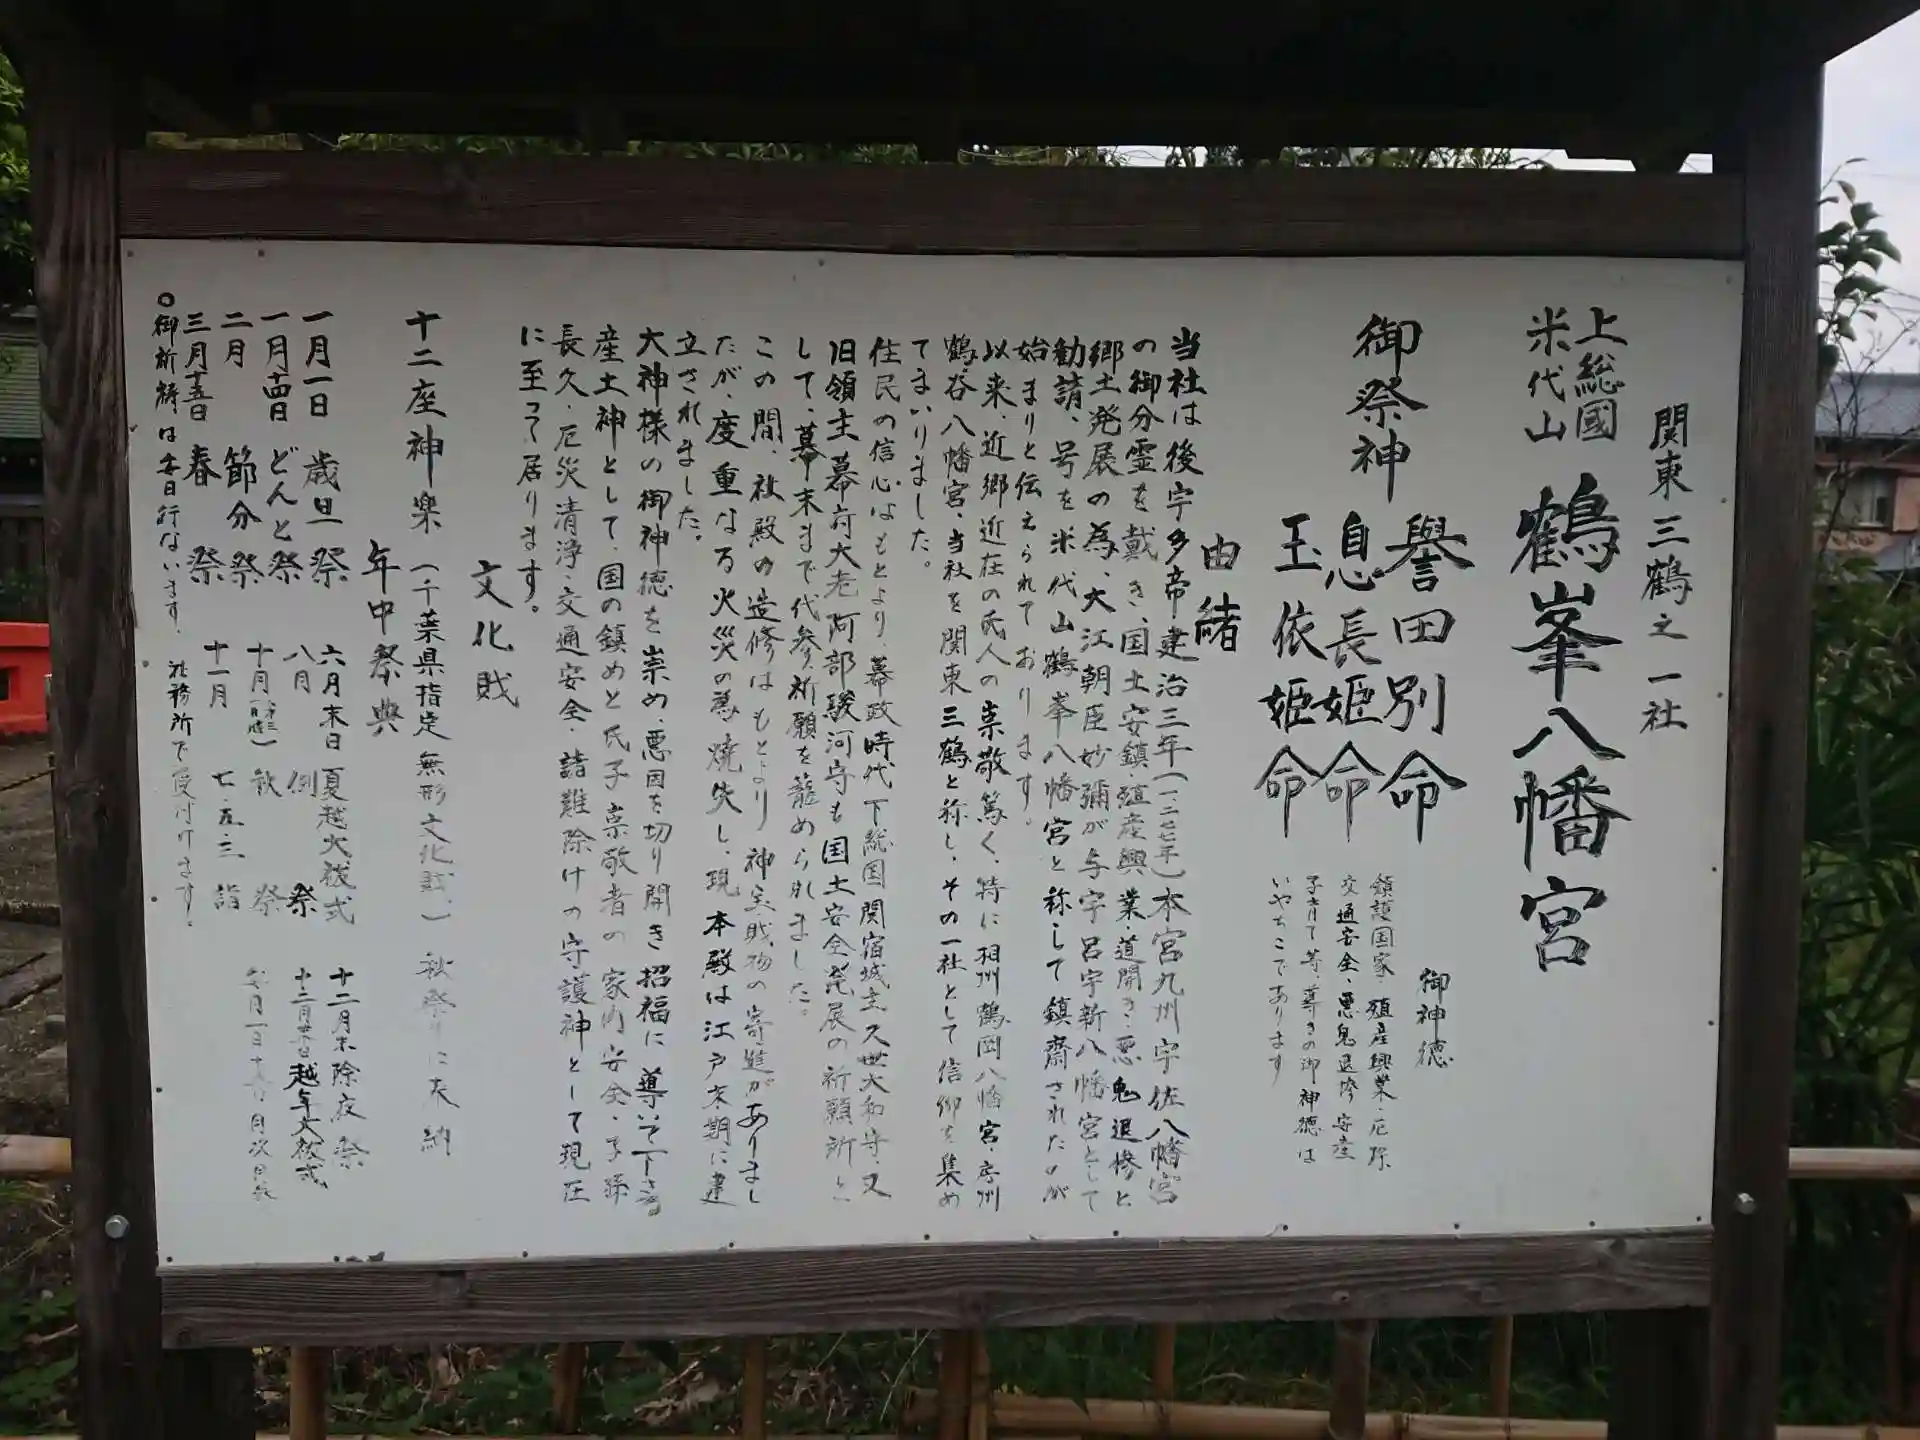 関東三鶴之一社
上総國
米代山
鶴峯八幡宮
御祭神
譽田別命
息長姫命
玉依姫命
御神徳
鎮護国家・殖産興業・厄除
交通安全・悪鬼退修・安産
子育て等・尊きの御神徳は
いやちこであります
由緒
当社は後宇多帝建治三年(一二七七年)本宮九州宇佐八幡宮
の御分霊を戴き、国土安鎮・殖産興業・道開き・悪鬼退修と
郷土発展の為、大江朝臣妙彌が与宇呂宇新八幡宮として
勧請、号を米代山鶴峯八幡宮と称して鎮齋されたのが
始まりと伝えられております。
以来、近郷近在の氏人の崇敬篤く、特に相州鶴岡八幡宮、房州
鶴谷八幡宮、当社を関東三鶴と称し、その一社として信仰を集め
てまいりました。
住民の信心はもとより、幕政時代下総国関宿城主久世大和守、又
旧領主幕府大老阿部駿河守も国土安全発展の祈願所と
して、幕末まで代参祈願を籠められました。
この間、社殿の造修はもとより神宝・財物の寄進がありまし
たが、度重なる火災の為焼失し、現本殿は江戸末期に建
立されました。
大神様の御神徳を崇め、悪因を切り開き招福に導いて下さる
産土神として、国の鎮めと氏子崇敬者の家内安全・子孫
長久・厄災清浄・交通安全・諸難除けの守護神として現在
に至って居ります。
文化財
十二座神楽(千葉県指定無形文化財)秋祭りに奉納
年中祭典
一月一日 歳旦祭 六月末日 夏越大祓式 十二月末 除夜祭
一月十四日 どんと祭 八月 例祭 越年大祓式
二月 節分祭 十月 秋祭 月次
三月十五日 春祭 十一月 七・五・三詣
○御祈祷は毎日行ないます。社務所で受付けます。